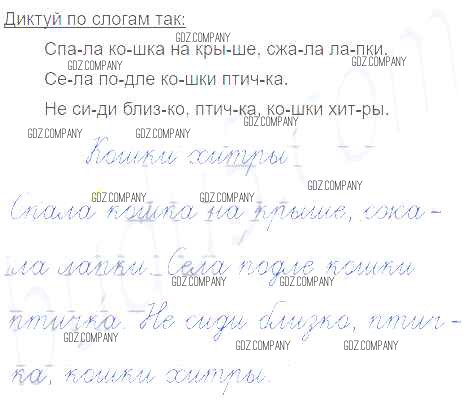 Диктуй по слогам так:
GDZ.COMPANY
Спа-ла ко-шка на кры-ше, сжа-ла ла-пки.
GDZ.COMPANY GDZ.COMPANY
Се-ла по-дле ко-шки птич-ка.
GDZ.COMPANY
Не си-ди близ-ко, птич-ка, ко-шки хит-ры.
GDZ.COMPANY
GDZ.COMPANY GDZ.COMPANY
Кошки хитры
GDZ.COMPANY
GDZ.COMPANY GDZ.COMPANY
Спала кошка на крыше, сжа-
GDZ.COMPANY
ла лапки. Села подле кошки
GDZ.COMPANY GDZ.COMPANY
птичка. Не сиди близко, птич-
GDZ.COMPANY GDZ.COMPANY
ка, кошки хитры.